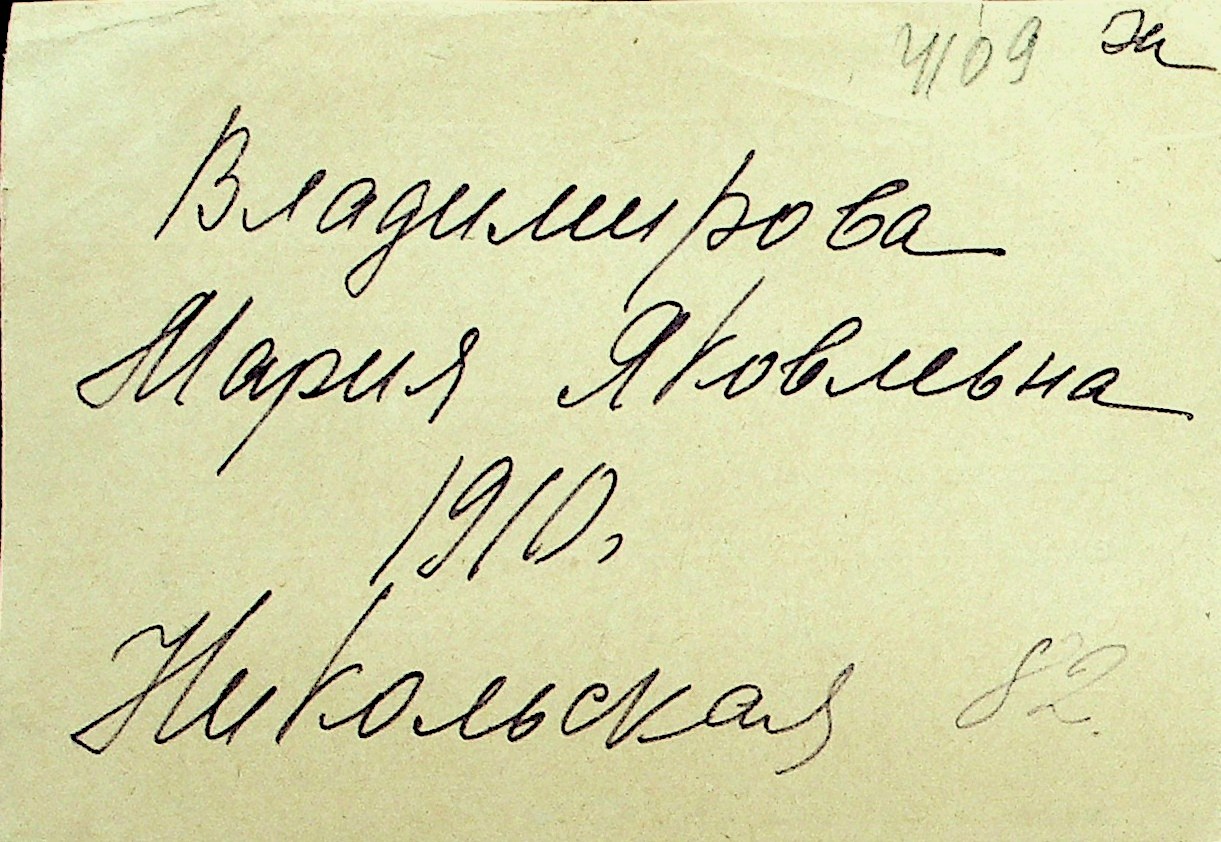 4109
Владимирова
Мария Яковльна
1910,
Никольская 82